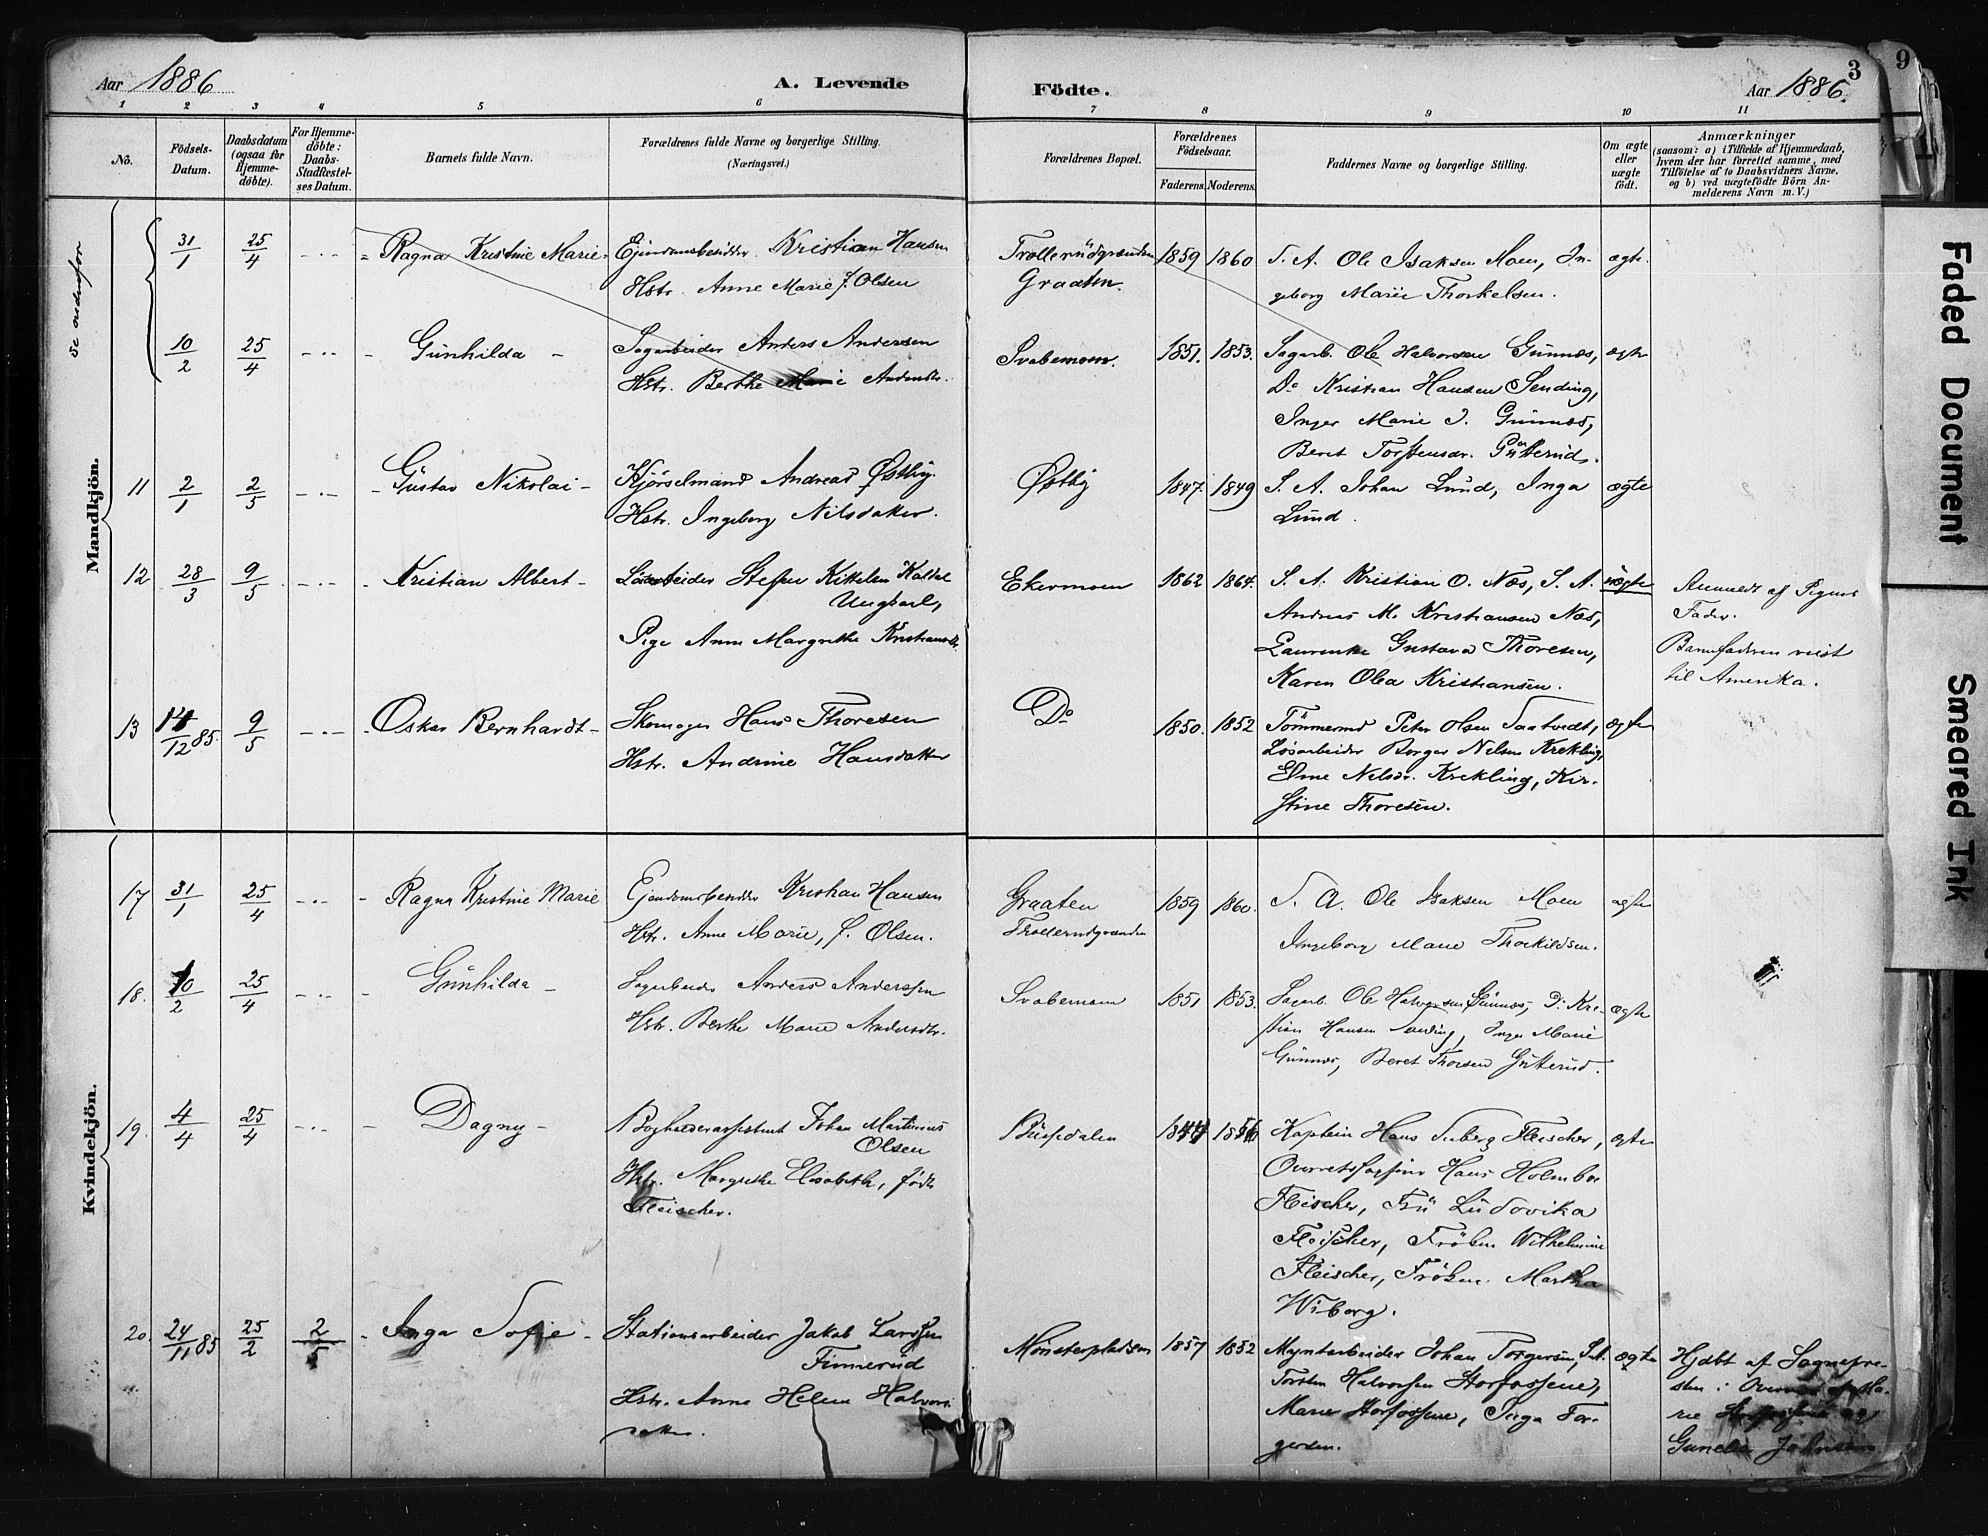 Aar 1886
A. Levende
Födte.
Aar 1886.
3
9
1 2 3 4 5 6 7 8 9 10 11
No.
Födsels-
Datum.
Daabsdatum
(ogsaa for
Hjemme-
döbte).
For Hjemme-
döbte:
Daabs-
Stadfæstel-
ses Datum.
Barnets fulde Navn.
Forældrenes fulde Navne og borgerlige Stilling.
(Næringsvei.)
Forældrenes Bopæl.
Forældrenes
Födselsaar.
Faderens.
Moderens.
Faddernes Navne og borgerlige Stilling.
Om ægte
eller
uægte
födt.
Anmærkninger
(saasom: a) i Tilfælde af Hjemmedaab,
hvem der har forrettet samme, med
Tilföielse af to Daabsvidners Navne,
og b) ved uægtefödte Börn An-
melderens Navn m. V.)
Mandkjön.
se nedenfor
31/1 25/4 - Ragna Kristine Marie
Kristian Hansen
Hstr. Anne Marie f. Olsen
Graaten.
1859 1860
S. A. Ole Isaksen Moen, In-
geborg Marie Thorkelsen.
ægte.
10/2 25/4 - Gunhilda -
Sagarbeider Anders Andersen
Hstr. Berthe Marie Andersdtr.
Svabemoen.
1851. 1853.
Sagarb. Ole Halvorsen Gunnes,
Do Kristian Hansen Sending,
Inger Marie J. Gunnes,
Beret Torstensdr. Gutterud.
ægte
11 2/1 2/5 - Gustav Nikolai -
Kjörselmand Andreas Østby.
Hstr. Ingeborg Nilsdatter.
Østby
1847. 1849
S. A. Johan Lund, Inga
Lund.
ægte
12 28/3 9/5 - Kristian Albert -
Løsarbeider Steffen Kittelsen
Ungkarl,
Pige Anne Margrethe Kristiansdtr.
Ekermoen
1862 1864.
S. A. Kristian O. Næs, S. A.
Andreas M. Kristiansen Næs,
Laurentse Gustava Thoresen,
Karen Olea Kristiansen.
uægte
Anmeldt af Pigens
Fader.
Barnefaderen reist
til Amerika.
13 14/12 85. 9/5 - Oskar Bernhardt -
Skomager Hans Thoresen
Hstr. Andrine Hansdatter
Do
1850. 1852
Tömmermd Peter Olsen Saatvedt,
Løsarbeider Borger Nilsen Krekling,
Nilsdr. Krekling, Kir-
stine Thoresen.
ægte
Kvindekjön.
17 31/1 25/4 - Ragna Kristine Marie
Kristian Hansen
Hstr. Anne Marie, f. Olsen.
Graaten
1859 1860.
S. A. Ole Isaksen Moen
Ingeborg Marie Thorkildsen.
ægte
18. 10/2 25/4 - Gunhilda -
Sagarbeider Anders Anderssen
Hstr. Berthe Marie Andersdtr.
Svabemoen
1851 1853.
Sagarb. Ole Halvorsen Gunnes, Do Kri-
stian Hansen Sending, Inger Marie
Gunnes, Beret Thorsen Gutterud.
ægte
19. 4/4 25/4 - Dagny -
Bogholderassistent Johan Martinius
Olsen
Hstr. Margrethe Elisabeth, født
Fleischer.
1856
Kaptein Hans Fleischer,
Hans Holmboe
Fleischer, Fru Ludovika
Fleischer, Frøken Wilhelmine
Fleischer, Frøken Martha
Wiborg.
ægte
20. 24/11 85 25/2 2/5 - Inga Sofie -
Stationsarbeider Jakob Larssen
Finnerud
Hstr. Anne Helene Halvors-
datter.
Mønsterpladsen
1857 1852
Myntarbeider Johan Torgersen, S. A.
Torsten Halvorsen Storfossene,
Marie Storfossene, Inga Tor-
gersen.
ægte
Hjdbt af Sognepre-
sten i
Gunelia Johnsen
Faded Document
Smeared Ink